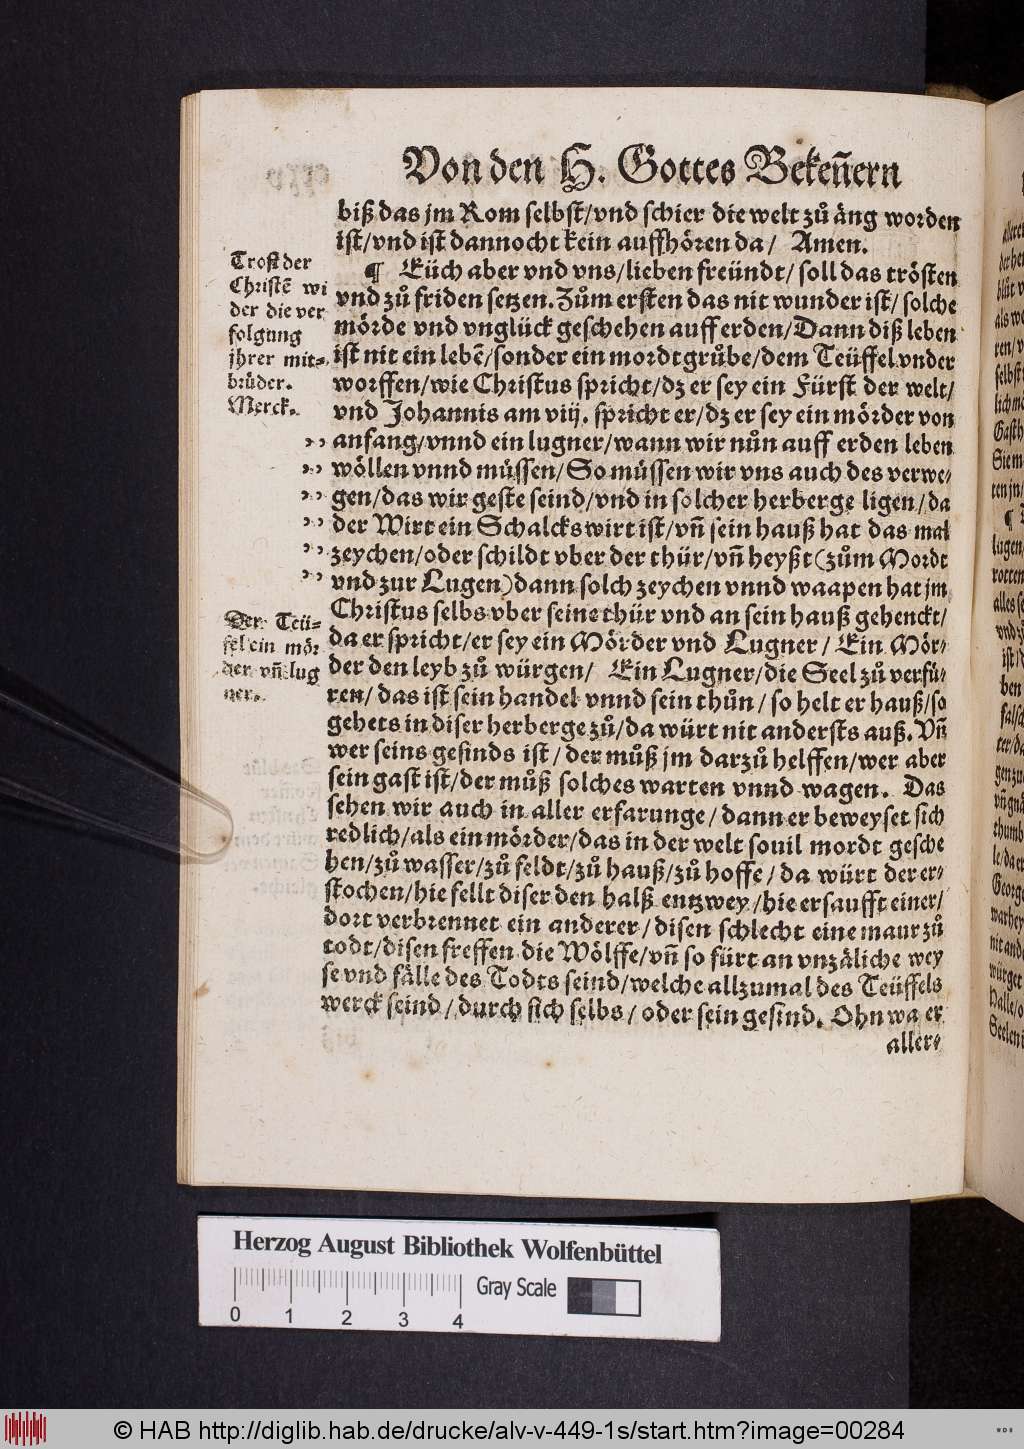 Von den H. Gottes Beken̄ern
biß das jm Rom selbst/vnd schier die welt zů äng worden
ist/vnd ist dannocht kein auffhören da/ Amen.
¶ Eüch aber vnd vns/lieben freündt/ soll das trösten
vnd zů friden setzen. Zům ersten das nit wunder ist/ solche
mörde vnd vnglück geschehen auff erden/Dann diß leben
ist nit ein lebē/sonder ein mordtgrůbe/dem Teüffel vnder
worffen/wie Christus spricht/dz er sey ein Fürst der welt/
vnd Johannis am viij. spricht er/dz er sey ein mörder von
anfang/vnnd ein lugner/wann wir nůn auff erden leben
wöllen vnnd müssen/So müssen wir vns auch des verwe-
gen/das wir geste seind/vnd in solcher herberge ligen/da
der Wirt ein Schalckswirt ist/vn̄ sein hauß hat das mal
zeychen/oder schildt vber der thür/vn̄ heyßt(zům Mordt
vnd zur Lugen)dann solch zeychen vnnd waapen hat jm
Christus selbs vber seine thür vnd an sein hauß gehenckt/
da er spricht/er sey ein Mörder vnd Lugner/ Ein Mör-
der den leyb zů würgen/ Ein Lugner/die Seel zů verfü-
ren/ das ist sein handel vnnd sein thůn/ so helt er hauß/so
gehets in diser herberge zů/da würt nit anderst auß. Vn̄
wer seins gesinds ist/ der můß jm darzů helffen/wer aber
sein gast ist/der můß solches warten vnnd wagen. Das
sehen wir auch in aller erfarunge/ dann er beweyset sich
redlich/als ein mörder/das in der welt souil mordt gesche
hen/zů wasser/zů feldt/zů hauß/zů hoffe/ da würt der er-
stochen/hie fellt diser den halß entzwey/hie ersaufft einer/
dort verbrennet ein anderer/ disen schlecht eine maur zů
todt/disen fressen die Wölffe/vn̄ so fürt an vnzäliche wey
se vnd fälle des Todts seind/welche allzumal des Teüffels
werck seind/ durch sich selbs/ oder sein gesind. Ohn wa er
aller-
Trost der
Christē wi
der die ver
folgung
jhrer mit-
brüder.
Merck.
Der Teü-
fel ein mör
der vn̄ lug
ner.
Herzog August Bibliothek Wolfenbüttel
Gray Scale
0 1 2 3 4
© HAB http://diglib.hab.de/drucke/alv-v-449-1s/start.htm?image=00284